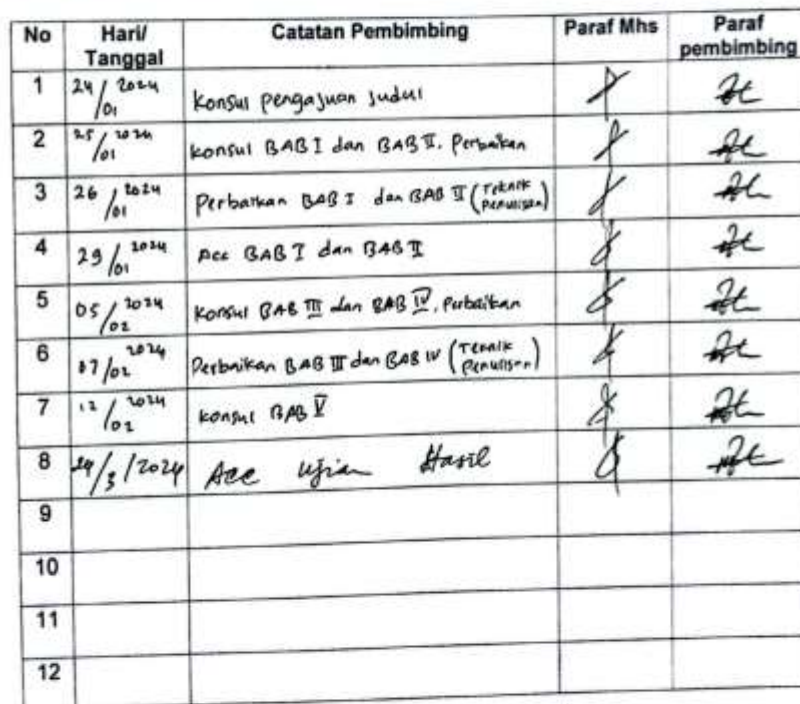 No Hari/ Tanggal Catatan Pembimbing Paraf Mhs Paraf pembimbing
1 24/01 2024 Konsul pengajuan judul
2 25/01 2024 konsul BAB I dan BAB II. Perbaikan
3 26/01 2024 Perbaikan BAB I dan BAB II (Teknik Penulisan)
4 29/01 2024 Acc BAB I dan BAB II
5 05/02 2024 Konsul BAB III dan BAB IV. Perbaikan
6 07/02 2024 Perbaikan BAB III dan BAB IV (Teknik Penulisan)
7 12/02 2024 konsul BAB V
8 24/3/2024 Acc Ujian Hasil
9
10
11
12